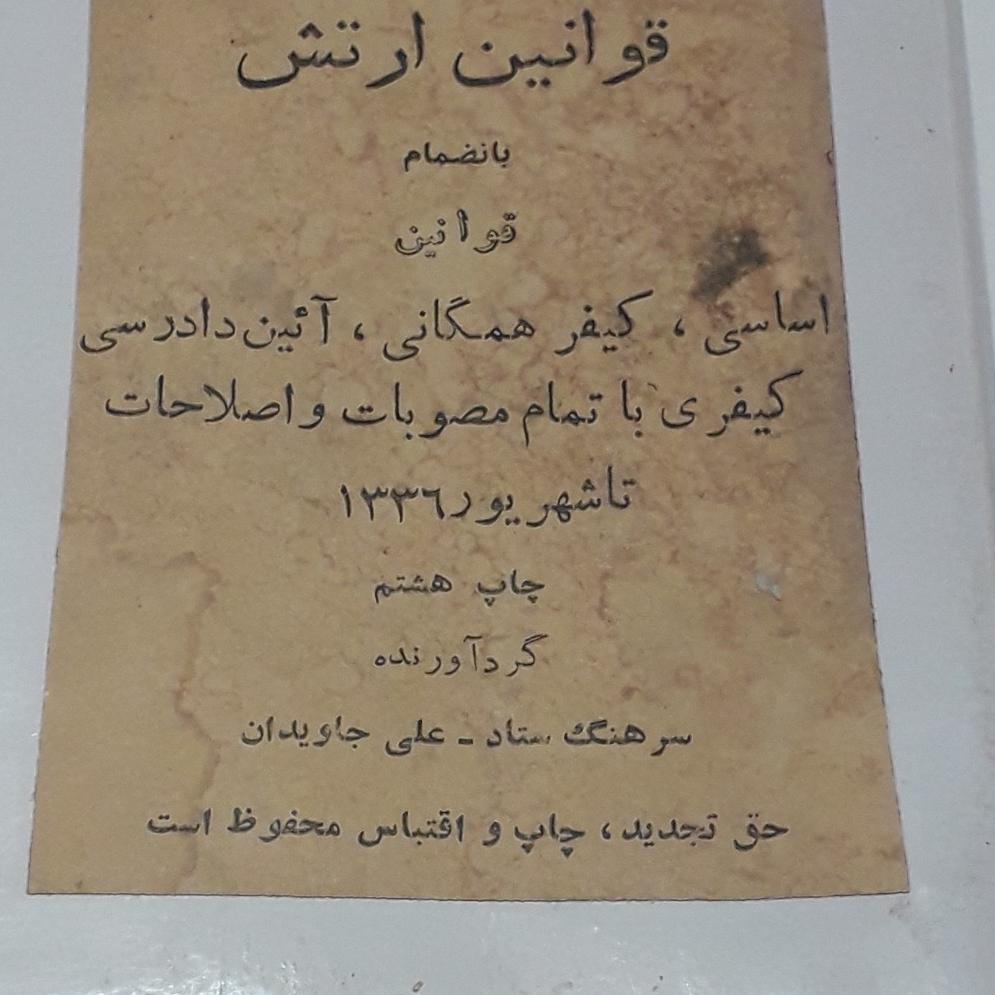 قوانین ارتش
بانضمام
قوانین
اساسی ، کیفر همگانی ، آئین دادرسی
کیفری با تمام مصوبات و اصلاحات
تا شهریور ۱۳۳۶
چاپ هشتم
گردآورنده
سرهنگ ستاد ـ علی جاویدان
حق تجدید، چاپ و اقتباس محفوظ است